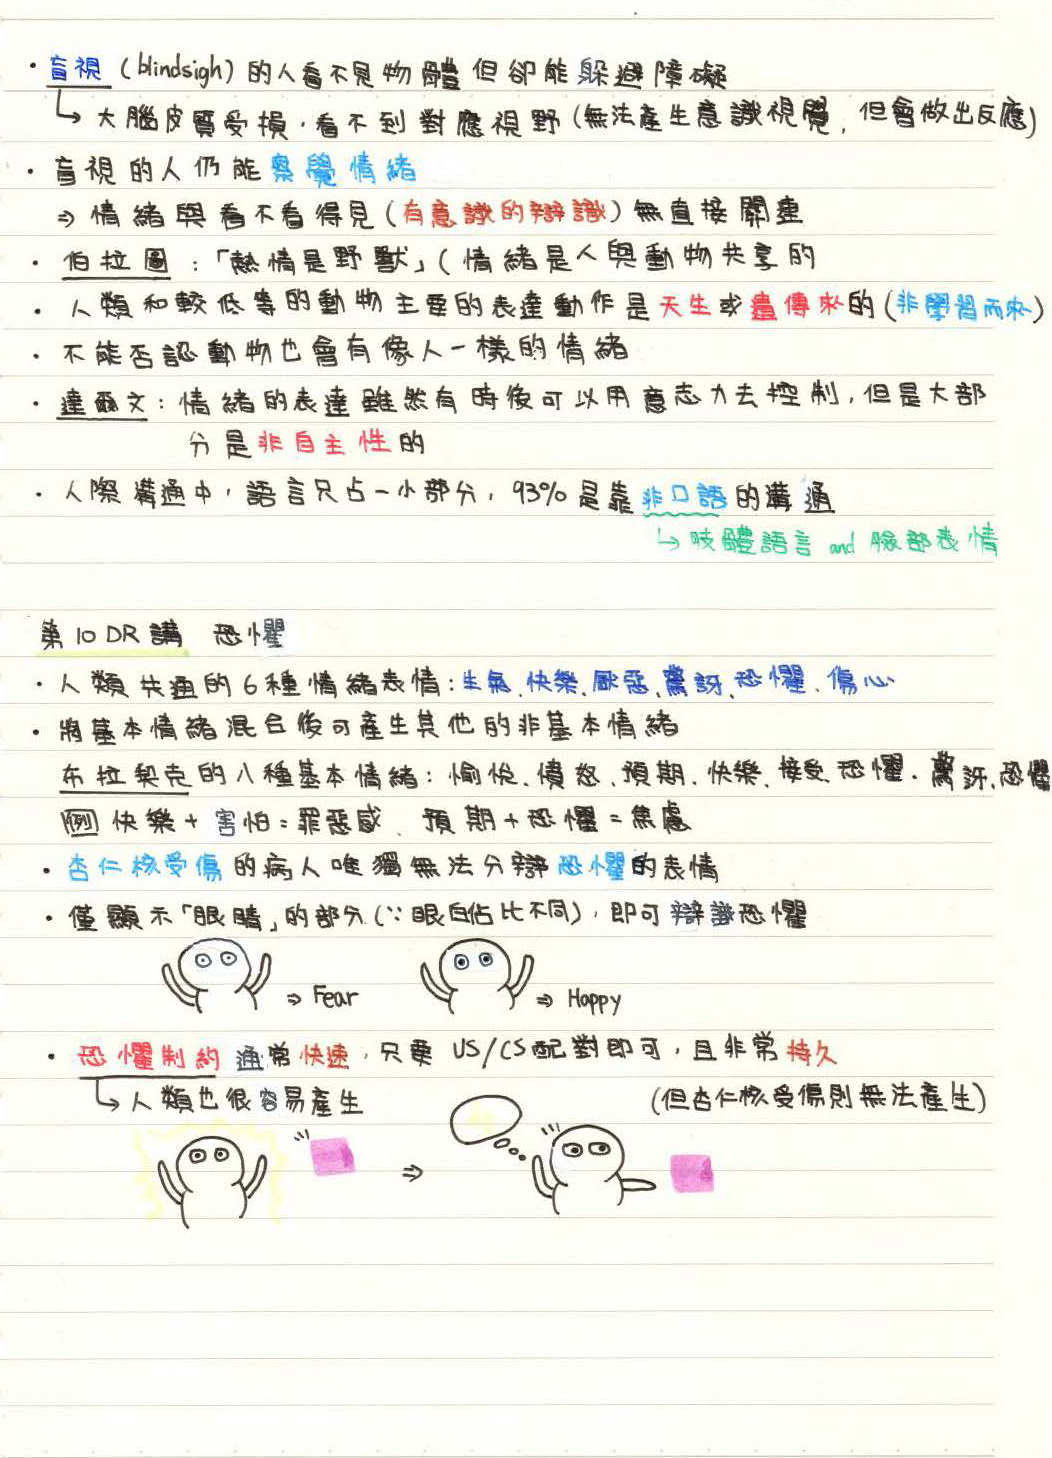 ・盲視（blindsigh）的人看不見物體但卻能躲避障礙
↳大腦皮質受損，看不到對應視野（無法產生意識視覺，但會做出反應）
・盲視的人仍能察覺情緒
⇒情緒與看不看得見（有意識的辯識）無直接關連
・伯拉圖：「熱情是野獸」（情緒是人與動物共享的
・人類和較低等的動物主要的表達動作是天生或遺傳來的（非學習而來）
・不能否認動物也會有像人一樣的情緒
・達爾文：情緒的表達雖然有時後可以用意志力去控制，但是大部
分是非自主性的
・人際溝通中，語言只占一小部分，93%是靠非口語的溝通
↳肢體語言 and 臉部表情
第10DR講 恐懼
・人類共通的6種情緒表情：生氣、快樂、厭惡、驚訝、恐懼、傷心
・將基本情緒混合後可產生其他的非基本情緒
布拉契克的八種基本情緒：愉悅、憤怒、預期、快樂、接受、恐懼、驚訝、恐懼
例 快樂+害怕=罪惡感、預期+恐懼=焦慮
・杏仁核受傷的病人唯獨無法分辯恐懼的表情
・僅顯示「眼睛」的部分（∵眼白佔比不同），即可辯識恐懼
⇒ Fear
⇒ Happy
・恐懼制約通常快速，只要US/CS配對即可，且非常持久
↳人類也很容易產生
（但杏仁核受傷則無法產生）
⇒